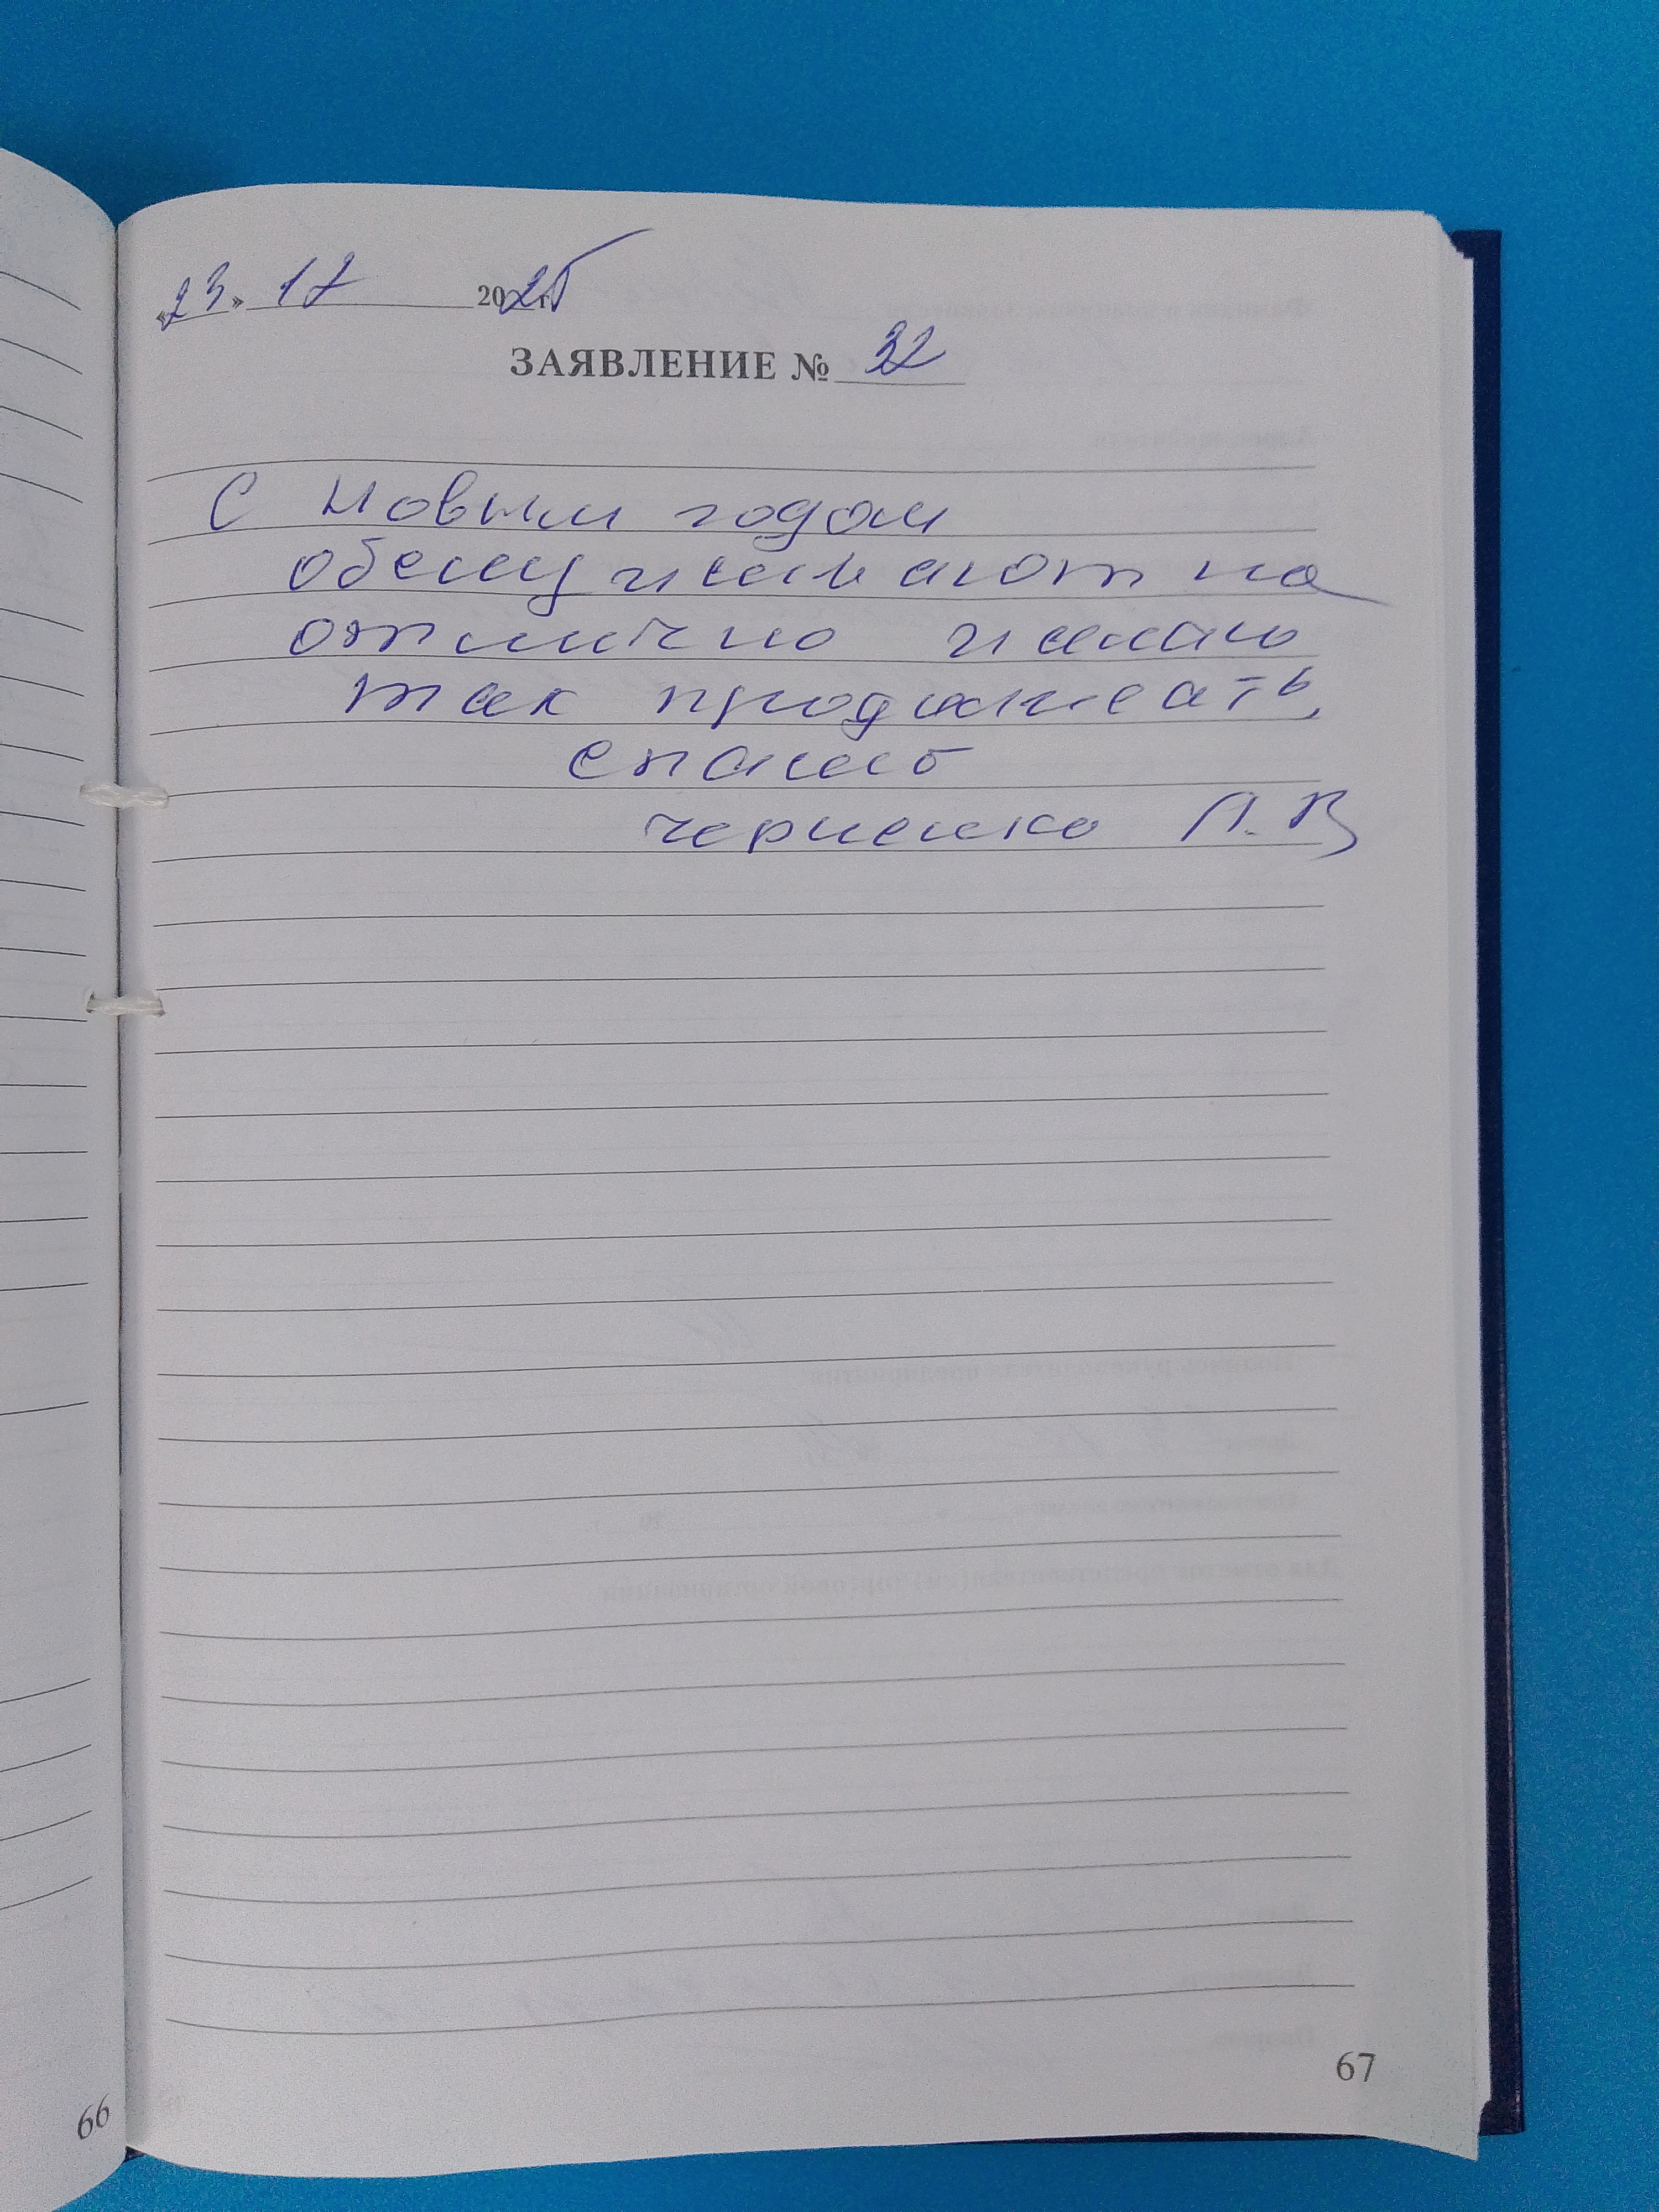 «23» 12 2025 г.
ЗАЯВЛЕНИЕ № 32
С Новым годом
обслуживают на
отлично желаю
так продолжать,
спасиб
черненко Л.В
66
67